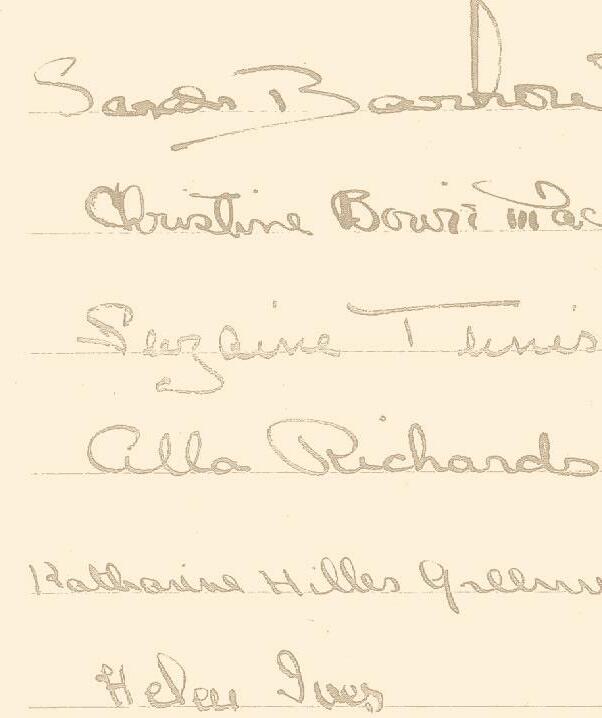 Christine Bowri Mac
Suzaine Tunis
Alla Richards
Katharine Hilles Green
Helen Ives